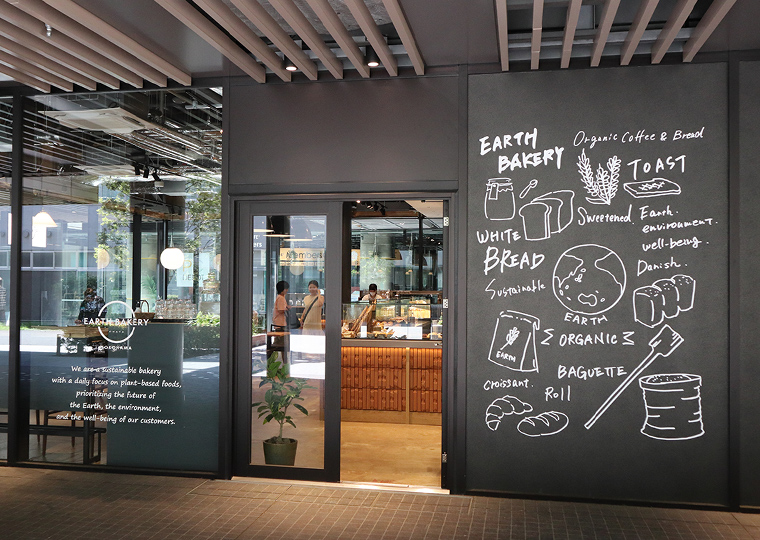 EARTH BAKERY
YOKOHAMA
We are a sustainable bakery
with a daily focus on plant-based foods,
prioritizing the future of
the Earth, the environment,
and the well-being of our customers.
Members
EARTH
BAKERY
Organic Coffee & Bread
TOAST
Sweetened
Earth.
environment.
well-being.
WHITE
BREAD
Sustainable
Danish.
EARTH
EARTH
ORGANIC
BAGUETTE
Croissant.
Roll